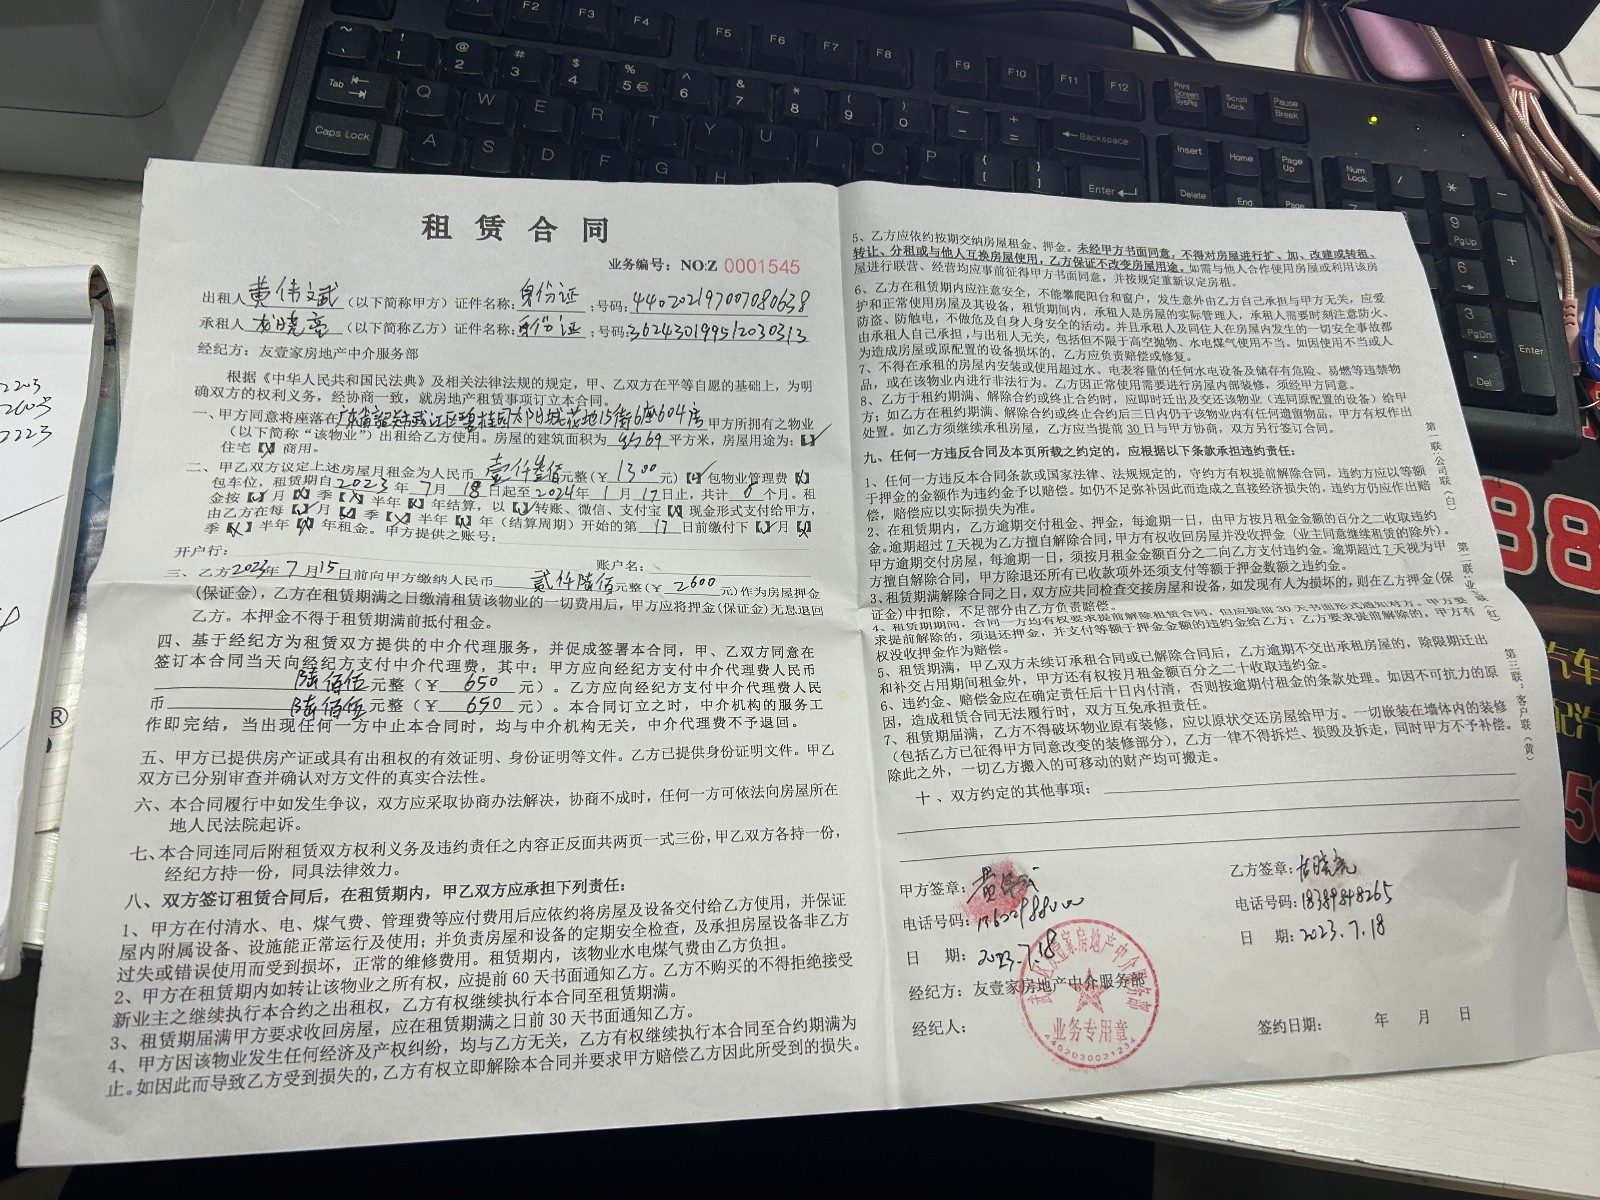 租赁合同
业务编号：NO:Z 0001545
出租人 黄伟斌 （以下简称甲方）证件名称：身份证；号码：440202197007080638
承租人 晓亮 （以下简称乙方）证件名称：身份证；号码：362430199512030313
经纪方：友壹家房地产中介服务部
根据《中华人民共和国民法典》及相关法律法规的规定，甲、乙双方在平等自愿的基础上，为明
确双方的权利义务，经协商一致，就房地产租赁事项订立本合同。
一、甲方同意将座落在广东省韶关市武江区碧桂园太阳城花地15街6座604房 甲方所拥有之物业
（以下简称“该物业”）出租给乙方使用。房屋的建筑面积为 平方米，房屋用途为：【】
住宅【】商用。
二、甲乙双方议定上述房屋月租金为人民币 壹仟叁佰 元整（￥ 1300 元）【】包物业管理费【】
包车位，租赁期自 2023 年 7 月 18 日起至 2024 年 1 月 17 日止，共计 6 个月。租
金按【】月【】季【】半年【】年结算，以【】转账、微信、支付宝【】现金形式支付给甲方，
由乙方在每【】月【】季【】半年【】年（结算周期）开始的第 17 日前缴付下【】月【】
季【】半年【】年租金。甲方提供之账号：
开户行： 账户名：
三、乙方 2023年 7 月 15 日前向甲方缴纳人民币 贰仟陆佰 元整（￥ 2600 元）作为房屋押金
（保证金），乙方在租赁期满之日缴清租赁该物业的一切费用后，甲方应将押金（保证金）无息退回
乙方。本押金不得于租赁期满前抵付租金。
四、基于经纪方为租赁双方提供的中介代理服务，并促成签署本合同，甲、乙双方同意在
签订本合同当天向经纪方支付中介代理费，其中：甲方应向经纪方支付中介代理费人民币
陆佰伍 元整（￥ 650 元）。乙方应向经纪方支付中介代理费人民
币 陆佰伍 元整（￥ 650 元）。本合同订立之时，中介机构的服务工
作即完结，当出现任何一方中止本合同时，均与中介机构无关，中介代理费不予退回。
五、甲方已提供房产证或具有出租权的有效证明、身份证明等文件。乙方已提供身份证明文件。甲乙
双方已分别审查并确认对方文件的真实合法性。
六、本合同履行中如发生争议，双方应采取协商办法解决，协商不成时，任何一方可依法向房屋所在
地人民法院起诉。
七、本合同连同后附租赁双方权利义务及违约责任之内容正反面共两页一式三份，甲乙双方各持一份，
经纪方持一份，同具法律效力。
八、双方签订租赁合同后，在租赁期内，甲乙双方应承担下列责任：
1、甲方在付清水、电、煤气费、管理费等应付费用后应依约将房屋及设备交付给乙方使用，并保证
屋内附属设备、设施能正常运行及使用；并负责房屋和设备的定期安全检查，及承担房屋设备非乙方
过失或错误使用而受到损坏，正常的维修费用。租赁期内，该物业水电煤气费由乙方负担。
2、甲方在租赁期内如转让该物业之所有权，应提前60天书面通知乙方。乙方不购买的不得拒绝接受
新业主之继续执行本合约之出租权，乙方有权继续执行本合同至租赁期满。
3、租赁期届满甲方要求收回房屋，应在租赁期满之日前30天书面通知乙方。
4、甲方因该物业发生任何经济及产权纠纷，均与乙方无关，乙方有权继续执行本合同至合约期满为
止。如因此而导致乙方受到损失的，乙方有权立即解除本合同并要求甲方赔偿乙方因此所受到的损失。
5、乙方应依约按期交纳房屋租金、押金。未经甲方书面同意，不得对房屋进行扩、加、改建或转租、
转让、分租或与他人互换房屋使用，乙方保证不改变房屋用途。如需与他人合作使用房屋或利用该房
屋进行联营、经营均应事前征得甲方书面同意，并按规定重新议定房租。
6、乙方在租赁期内应注意安全，不能攀爬阳台和窗户，发生意外由乙方自己承担与甲方无关，应爱
护和正常使用房屋及其设备，租赁期间内，承租人是房屋的实际管理人，承租人需要时刻注意防火、
防盗、防触电，不做危及自身人身安全的活动。并且承租人及同住人在房屋内发生的一切安全事故都
由承租人自己承担，与出租人无关，包括但不限于高空抛物、水电煤气使用不当。如因使用不当或人
为造成房屋或原配置的设备损坏的，乙方应负责赔偿或修复。
7、不得在承租的房屋内安装或使用超过水、电表容量的任何水电设备及储存有危险、易燃等违禁物
品，或在该物业内进行非法行为。乙方因正常使用需要进行房屋内部装修，须经甲方同意。
8、乙方于租约期满、解除合约或终止合约时，应即时迁出及交还该物业（连同原配置的设备）给甲
方；如乙方在租约期满、解除合约或终止合约后三日内仍于该物业内有任何遗留物品，甲方有权作出
处置。如乙方须继续承租房屋，乙方应当提前30日与甲方协商，双方另行签订合同。
九、任何一方违反合同及本页所载之约定的，应根据以下条款承担违约责任：
1、任何一方违反本合同条款或国家法律、法规规定的，守约方有权提前解除合同，违约方应以等额
于押金的金额作为违约金予以赔偿。如仍不足弥补因此而造成之直接经济损失的，违约方仍应作出赔
偿，赔偿应以实际损失为准。
2、在租赁期内，乙方逾期交付租金、押金，每逾期一日，由甲方按月租金金额的百分之二收取违约
金。逾期超过7天视为乙方擅自解除合同，甲方有权收回房屋并没收押金（业主同意继续租赁的除外）。
甲方逾期交付房屋，每逾期一日，须按月租金金额百分之二向乙方支付违约金。逾期超过7天视为甲
方擅自解除合同，甲方除退还所有已收款项外还须支付等额于押金数额之违约金。
3、租赁期满解除合同之日，双方应共同检查交接房屋和设备，如发现有人为损坏的，则在乙方押金（保
证金）中扣除，不足部分由乙方负责赔偿。
4、租赁期期间，合同一方均有权要求提前解除租赁合同，但应提前30天书面形式通知对方。甲方要
求提前解除的，须退还押金，并支付等额于押金金额的违约金给乙方；乙方要求提前解除的，甲方有
权没收押金作为赔偿。
5、租赁期满，甲乙双方未续订承租合同或已解除合同后，乙方逾期不交出承租房屋的，除限期迁出
和补交占用期间租金外，甲方还有权按月租金金额百分之二十收取违约金。
6、违约金、赔偿金应在确定责任后十日内付清，否则按逾期付租金的条款处理。如因不可抗力的原
因，造成租赁合同无法履行时，双方互免承担责任。
7、租赁期届满，乙方不得破坏物业原有装修，应以原状交还房屋给甲方。一切嵌装在墙体内的装修
（包括乙方已征得甲方同意改变的装修部分），乙方一律不得拆烂、损毁及拆走，同时甲方不予补偿。
除此之外，一切乙方搬入的可移动的财产均可搬走。
十、双方约定的其他事项：
甲方签章： 乙方签章： 晓亮
电话号码： 电话号码：18389848265
日 期：2023.7.18 日 期：2023.7.18
经纪方：友壹家房地产中介服务部
经纪人： 签约日期： 年 月 日
业务专用章
第一联：公司联（白）
第二联：业主联（红）
第三联：客户联（黄）